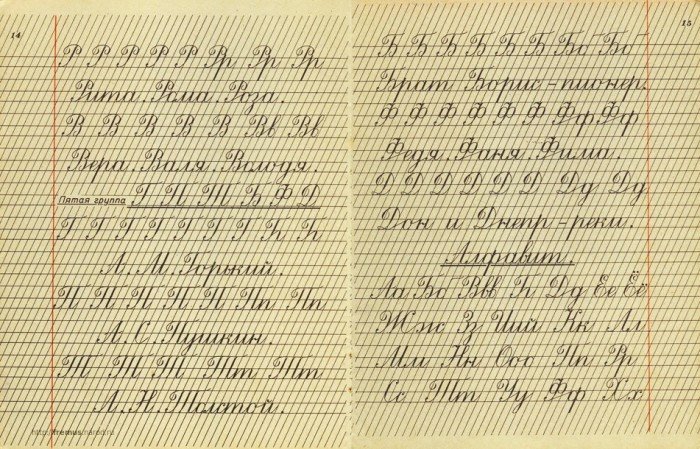 14
Р Р Р Р Р Рр Рр Рр
Рита. Рома. Роза.
В В В В В В Вв Вв
Вера. Валя. Володя.
Пятая группа Г П Т Б Ф Д
Г Г Г Г Г Г Г Гг Гг
А. М. Горький.
П П П П П П Пп Пп
А. С. Пушкин.
Т Т Т Т Тт Тт Тт
Л. Н. Толстой.
http://fremus.narod.ru
15
Б Б Б Б Б Б Бб Бб
Брат Борис – пионер.
Ф Ф Ф Ф Ф Ф Фф Фф
Федя. Фаня. Фима.
Д Д Д Д Д Д Дд Дд
Дон и Днепр – реки.
Алфавит.
Аа Бб Вв Гг Дд Ее Ёё
Жж Зз Иий Кк Лл
Мм Нн Оо Пп Рр
Сс Тт Уу Фф Хх